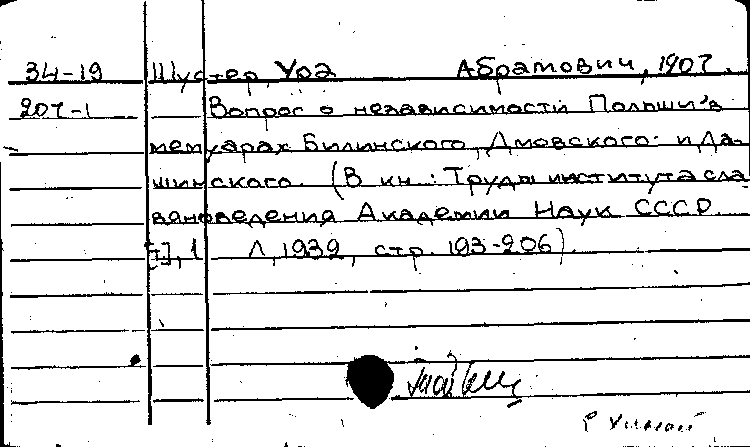 34-19 Шустер, Ура Абрамович, 1907.
207-1 Вопрос о независимости Польши в
мемуарах Билинского, Дмовского и Да-
шинского. (В кн.: Труды института сла
вяноведения Академии Наук СССР.
[т], 1 Л, 1932, стр. 193-206).